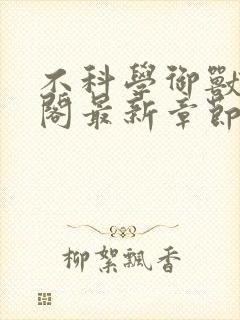 不科學御獸
閣最新章節
柳絮飄香